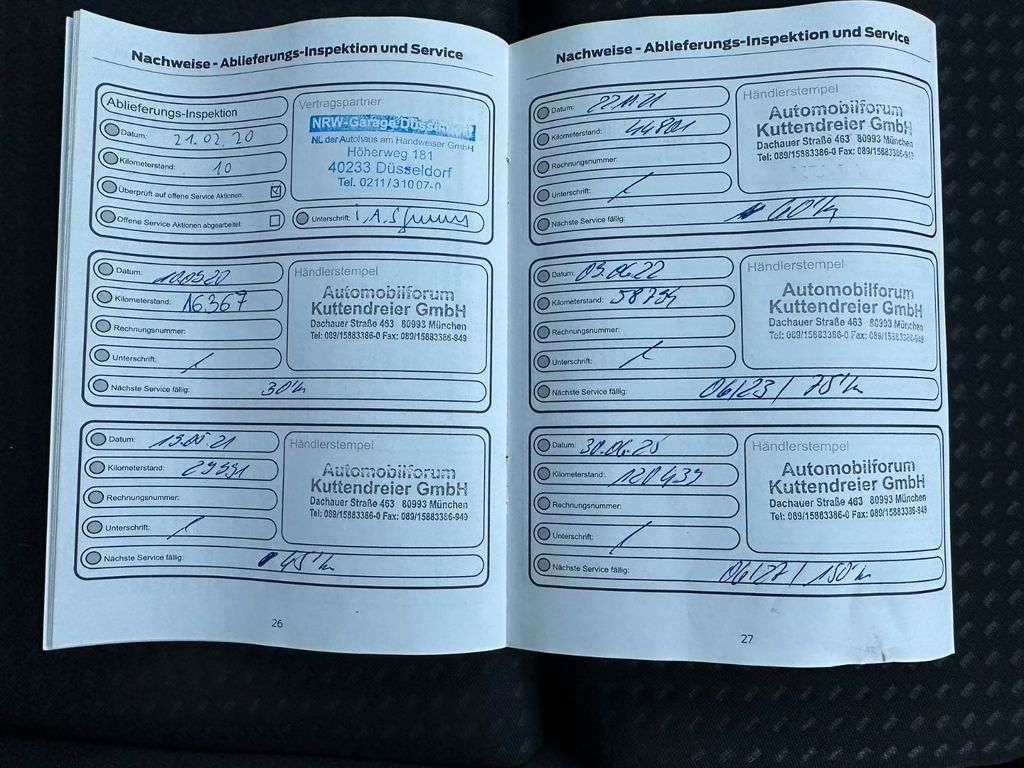 Nachweise - Ablieferungs-Inspektion und Service
Ablieferungs-Inspektion
Datum: 21.02.20
Kilometerstand: 10
Überprüft auf offene Service Aktionen.
Offene Service Aktionen abgearbeitet:
Vertragspartner
NRW-Garage Düsseldorf
NL der Autohaus am Handweiser GmbH
Höherweg 181
40233 Düsseldorf
Tel. 0211/31007-0
Unterschrift: i.A.
Datum: 100920
Kilometerstand: 16.367
Rechnungsnummer:
Unterschrift:
Nächste Service fällig: 30'km
Händlerstempel
Automobilforum
Kuttendreier GmbH
Dachauer Straße 463 80993 München
Tel: 089/15883386-0 Fax: 089/15883386-949
Datum: 19.05.21
Kilometerstand: 29591
Rechnungsnummer:
Unterschrift:
Nächste Service fällig: 45'km
Händlerstempel
Automobilforum
Kuttendreier GmbH
Dachauer Straße 463 80993 München
Tel: 089/15883386-0 Fax: 089/15883386-949
26
Nachweise - Ablieferungs-Inspektion und Service
Datum: 22.11.21
Kilometerstand: 44801
Rechnungsnummer:
Unterschrift:
Nächste Service fällig: 60'km
Händlerstempel
Automobilforum
Kuttendreier GmbH
Dachauer Straße 463 80993 München
Tel: 089/15883386-0 Fax: 089/15883386-949
Datum: 09.06.22
Kilometerstand: 58794
Rechnungsnummer:
Unterschrift:
Nächste Service fällig: 06/23 / 75'km
Händlerstempel
Automobilforum
Kuttendreier GmbH
Dachauer Straße 463 80993 München
Tel: 089/15883386-0 Fax: 089/15883386-949
Datum: 30.06.25
Kilometerstand: 120439
Rechnungsnummer:
Unterschrift:
Nächste Service fällig: 06/27 / 150'km
Händlerstempel
Automobilforum
Kuttendreier GmbH
Dachauer Straße 463 80993 München
Tel: 089/15883386-0 Fax: 089/15883386-949
27